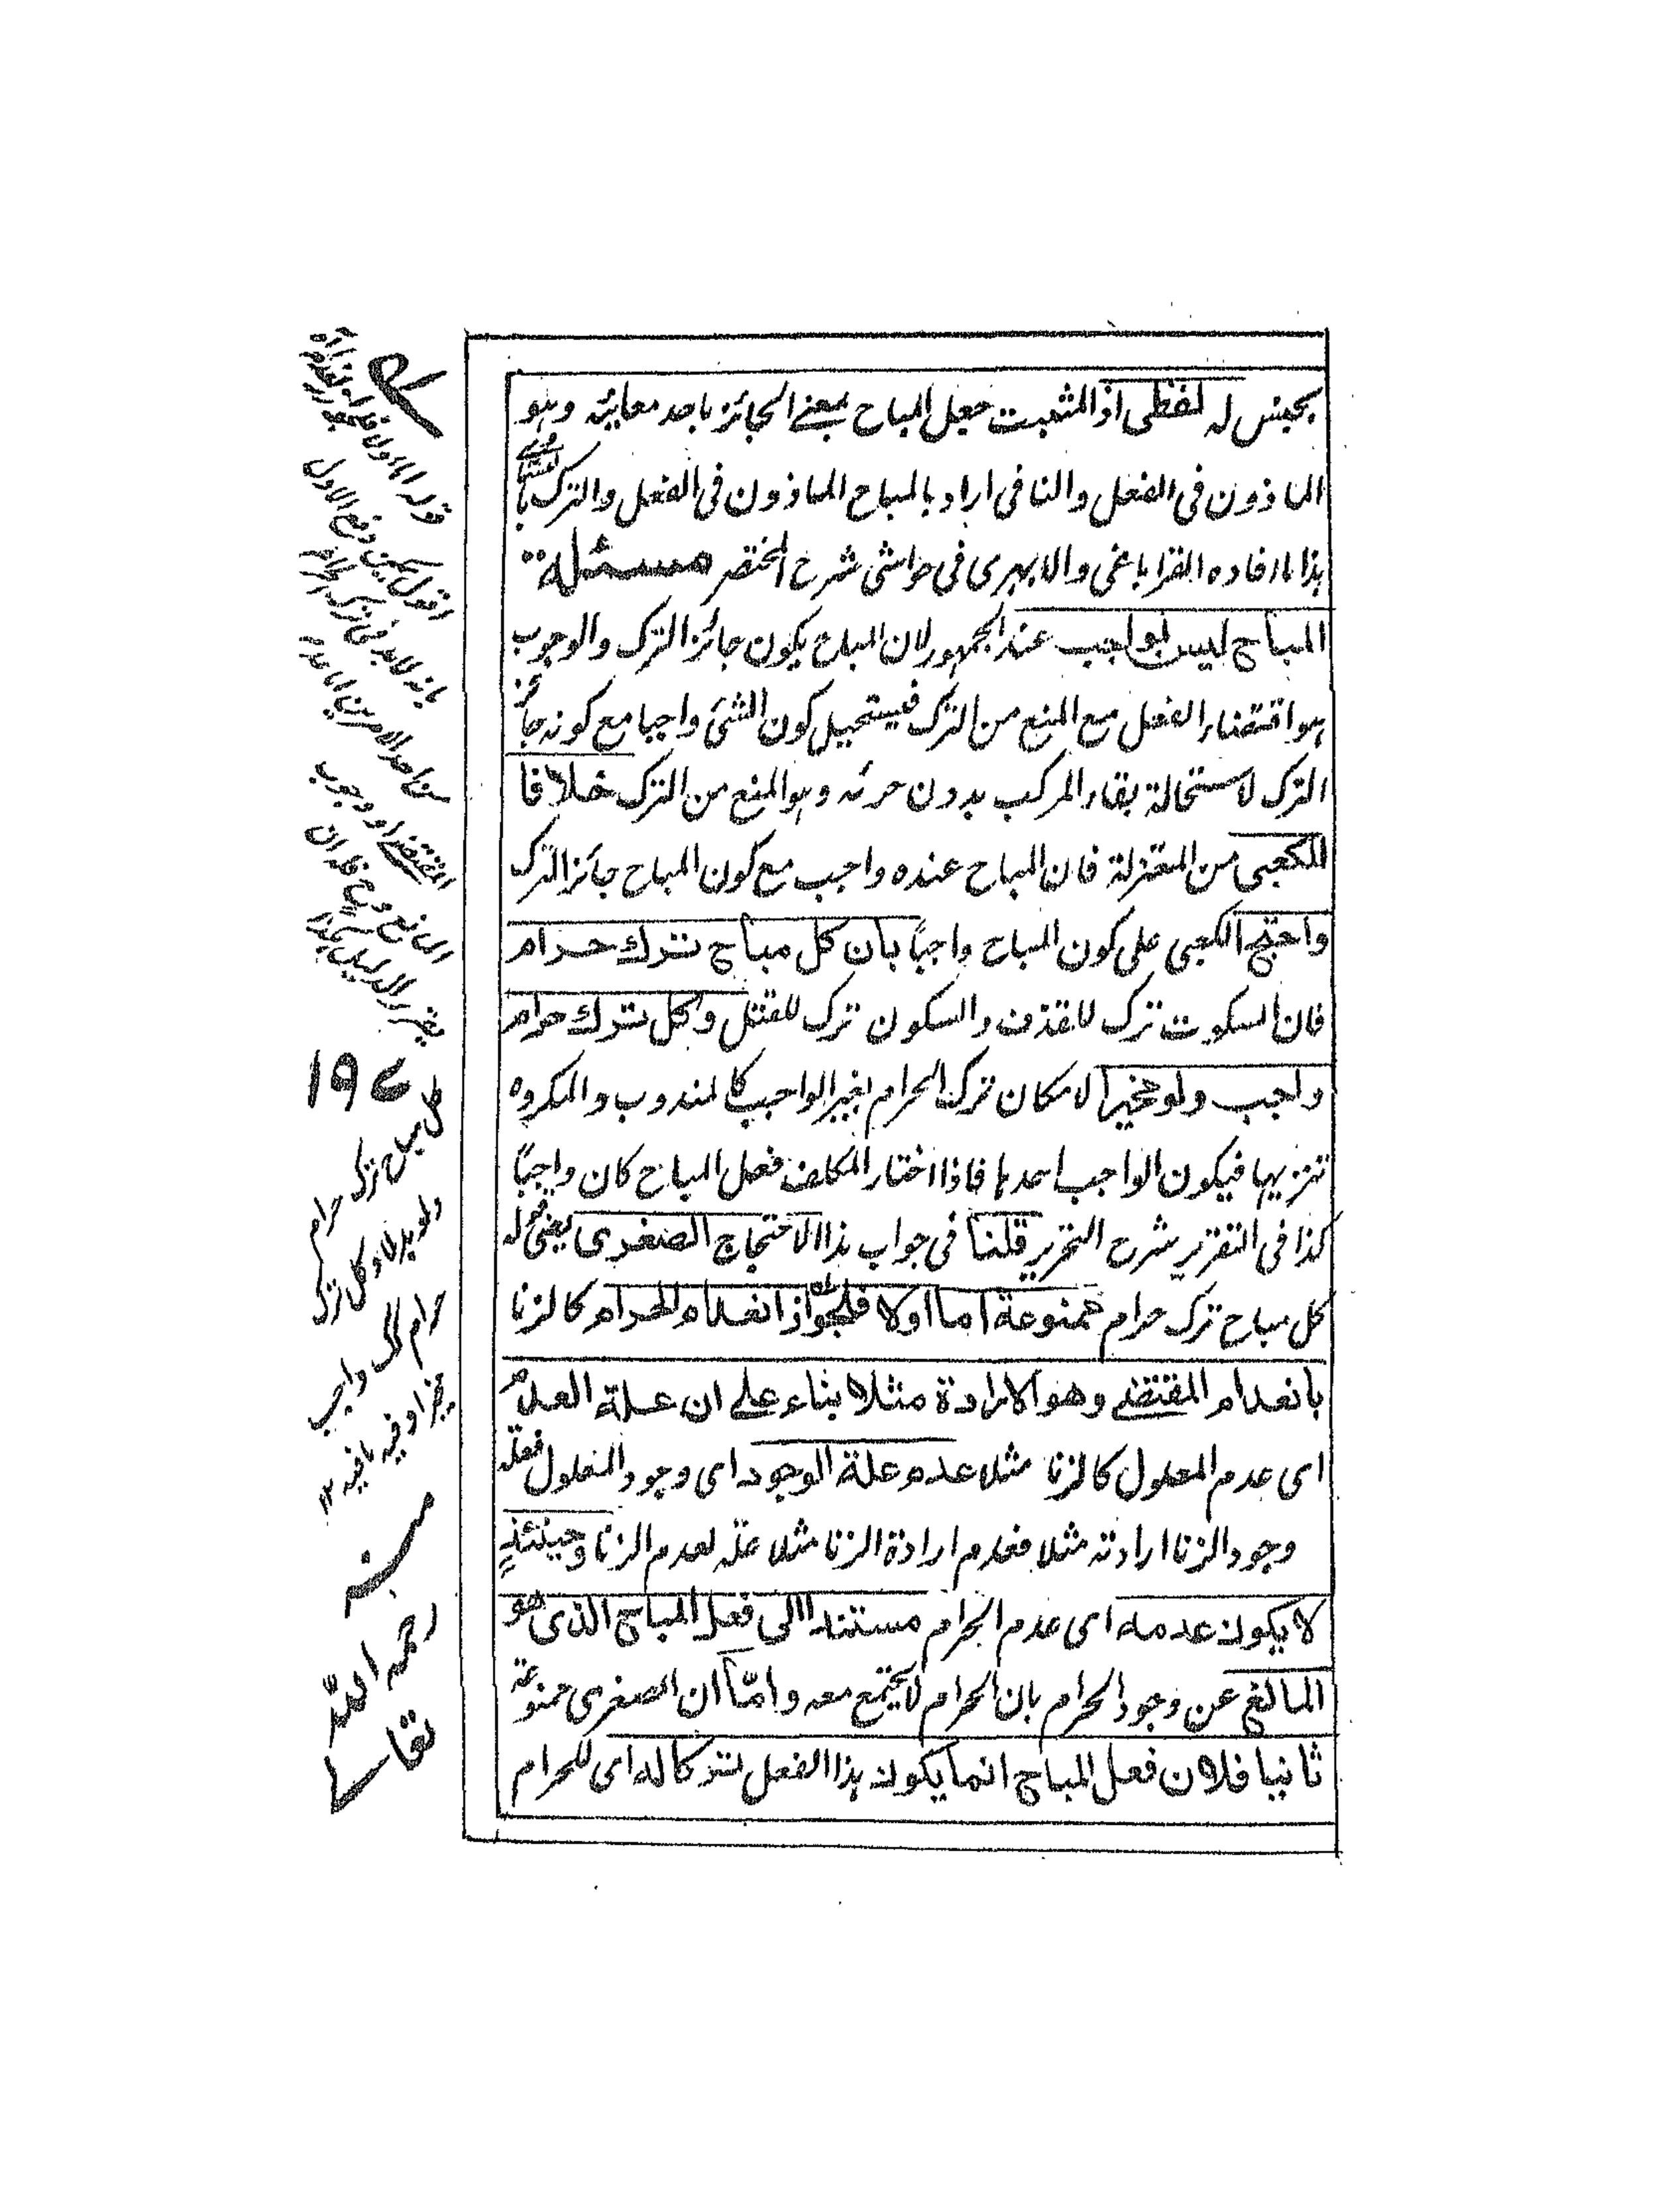 بجنس له لفظى اذ المثبت جعل المباح بمعنى الجائز باحد معانيه وهو
الماذون فى الفعل والنافى اراد بالمباح الماذون فى الفعل والترك
هذا ما افاده القراباغى والابهرى فى حواشى شرح المختصر مسئلة
المباح ليس بواجب عند الجمهور لان المباح يكون جائز الترك والوجوب
هو اقتضاء الفعل مع المنع من الترك فيستحيل كون الشئ واجبا مع كونه جائز
الترك لاستحالة بقاء المركب بدون جزئه وهو المنع من الترك خلافا
للكعبى من المعتزلة فان المباح عنده واجب مع كون المباح جائز الترك
واحتج الكعبى على كون المباح واجبًا بان كل مباح ترك حرام
فان السكوت ترك للقذف والسكون ترك للقتل وكل ترك حرام
واجب ولو مخيرا لامكان ترك الحرام بغير الواجب كالمندوب والمكروه
تنزيها فيكون الواجب احدها فاذا اختار المكلف فعل المباح كان واجبًا
كذا فى التقرير شرح التحرير قلنا فى جواب هذا الاحتجاج الصغرى يعنى قوله
كل مباح ترك حرام ممنوعة اما اولا فلجواز انعدام الحرام كالزنا
بانعدام المقتضى وهو الارادة مثلا بناء على ان علة العدم
اى عدم المعلول كالزنا مثلا عدم علة الوجود اى وجود المعلول فعلة
وجود الزنا ارادته مثلا فعدم ارادة الزنا مثلا علة لعدم الزنا وحينئذٍ
لا يكون عدمه اى عدم الحرام مستندا الى فعل المباح الذى هو
المانع عن وجود الحرام بان الحرام لا يجتمع معه واما ان الصغرى ممنوعة
ثانيا فلان فعل المباح انما يكون هذا الفعل تركا له اى للحرام
قوله اما اولا
اقول يمكن دفع الاول
بانه لابد فى ترك الحرام
من احد الامرين
المقتضى او وجوب
المانع
تقرير الدليل هكذا
كل مباح ترك حرام
ولو بدلا وكل ترك
حرام واجب
مخيرا وفيه ما فيه ١٢
منه
رحمه الله
تعالى